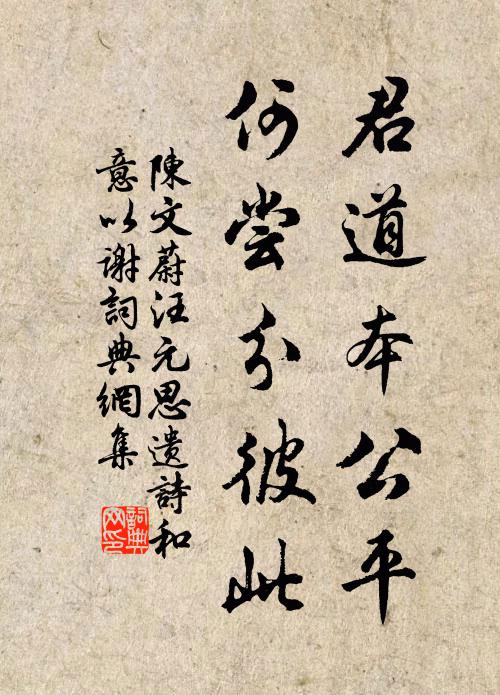 君道本公平
何尝分彼此
陳文蔚汪元思遺詩和
意以谢詞典網集
詞典網印